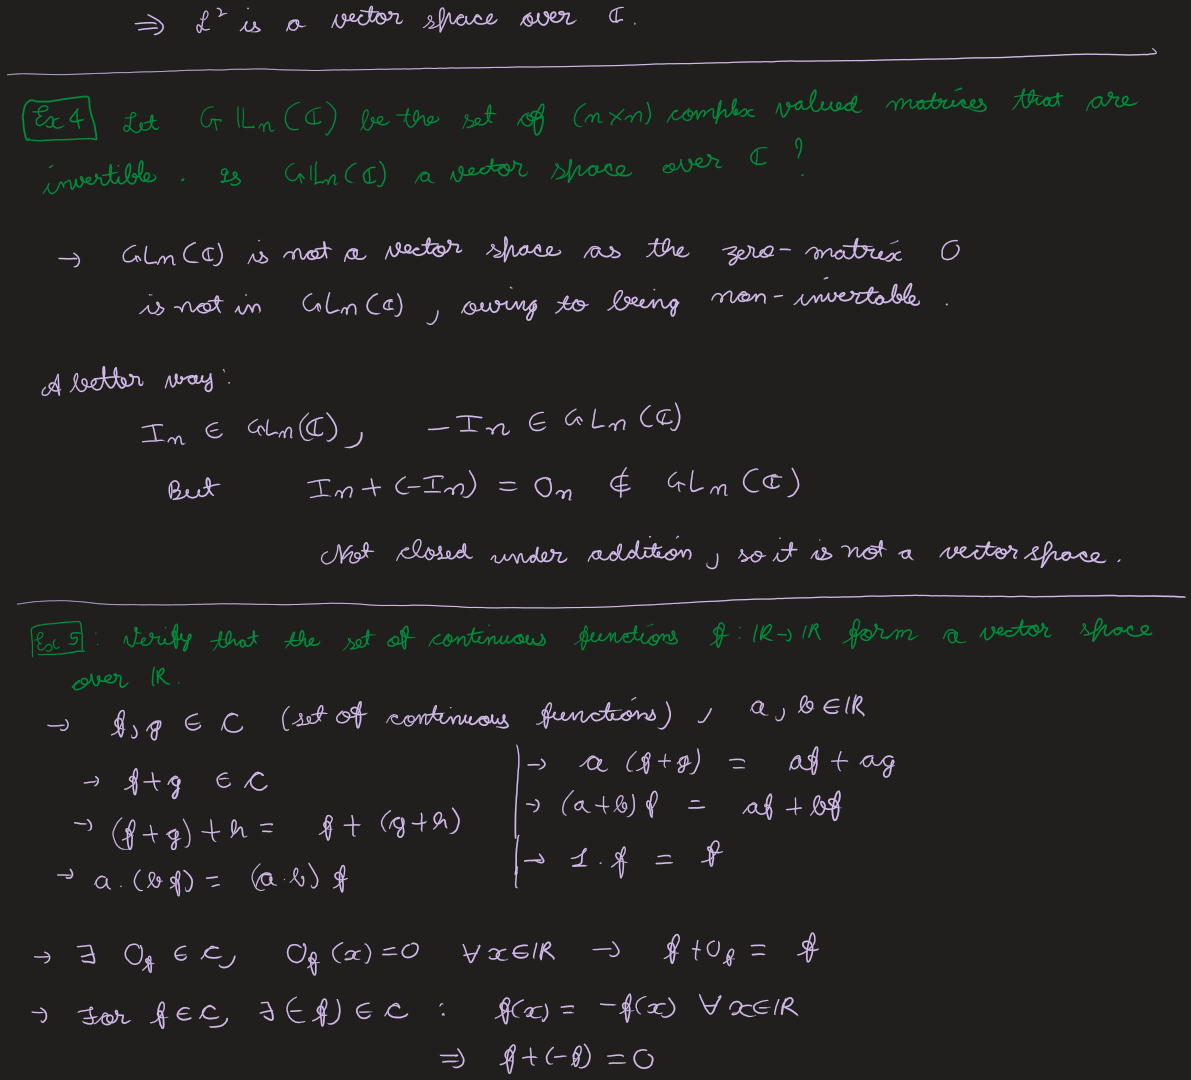 ⇒ L² is a vector space over ℂ.
Ex 4 Let GLn(ℂ) be the set of (n×n) complex valued matrices that are
invertible. Is GLn(ℂ) a vector space over ℂ?
→ GLn(ℂ) is not a vector space as the zero-matrix 0
is not in GLn(ℂ), owing to being non-invertable.
A better way:
In ∈ GLn(ℂ), -In ∈ GLn(ℂ)
But In + (-In) = 0n ∉ GLn(ℂ)
Not closed under addition, so it is not a vector space.
Ex 5: Verify that the set of continuous functions f: ℝ→ℝ form a vector space
over ℝ.
→ f, g ∈ C (set of continuous functions), a, b ∈ ℝ
→ f+g ∈ C
→ (f+g)+h = f+(g+h)
→ a.(bf) = (a.b) f
→ a (f+g) = af + ag
→ (a+b) f = af + bf
→ 1.f = f
→ ∃ 0f ∈ C, 0f(x) = 0 ∀x∈ℝ → f+0f = f
→ For f∈C, ∃ (-f) ∈ C : f(x) = -f(x) ∀x∈ℝ
⇒ f+(-f) = 0